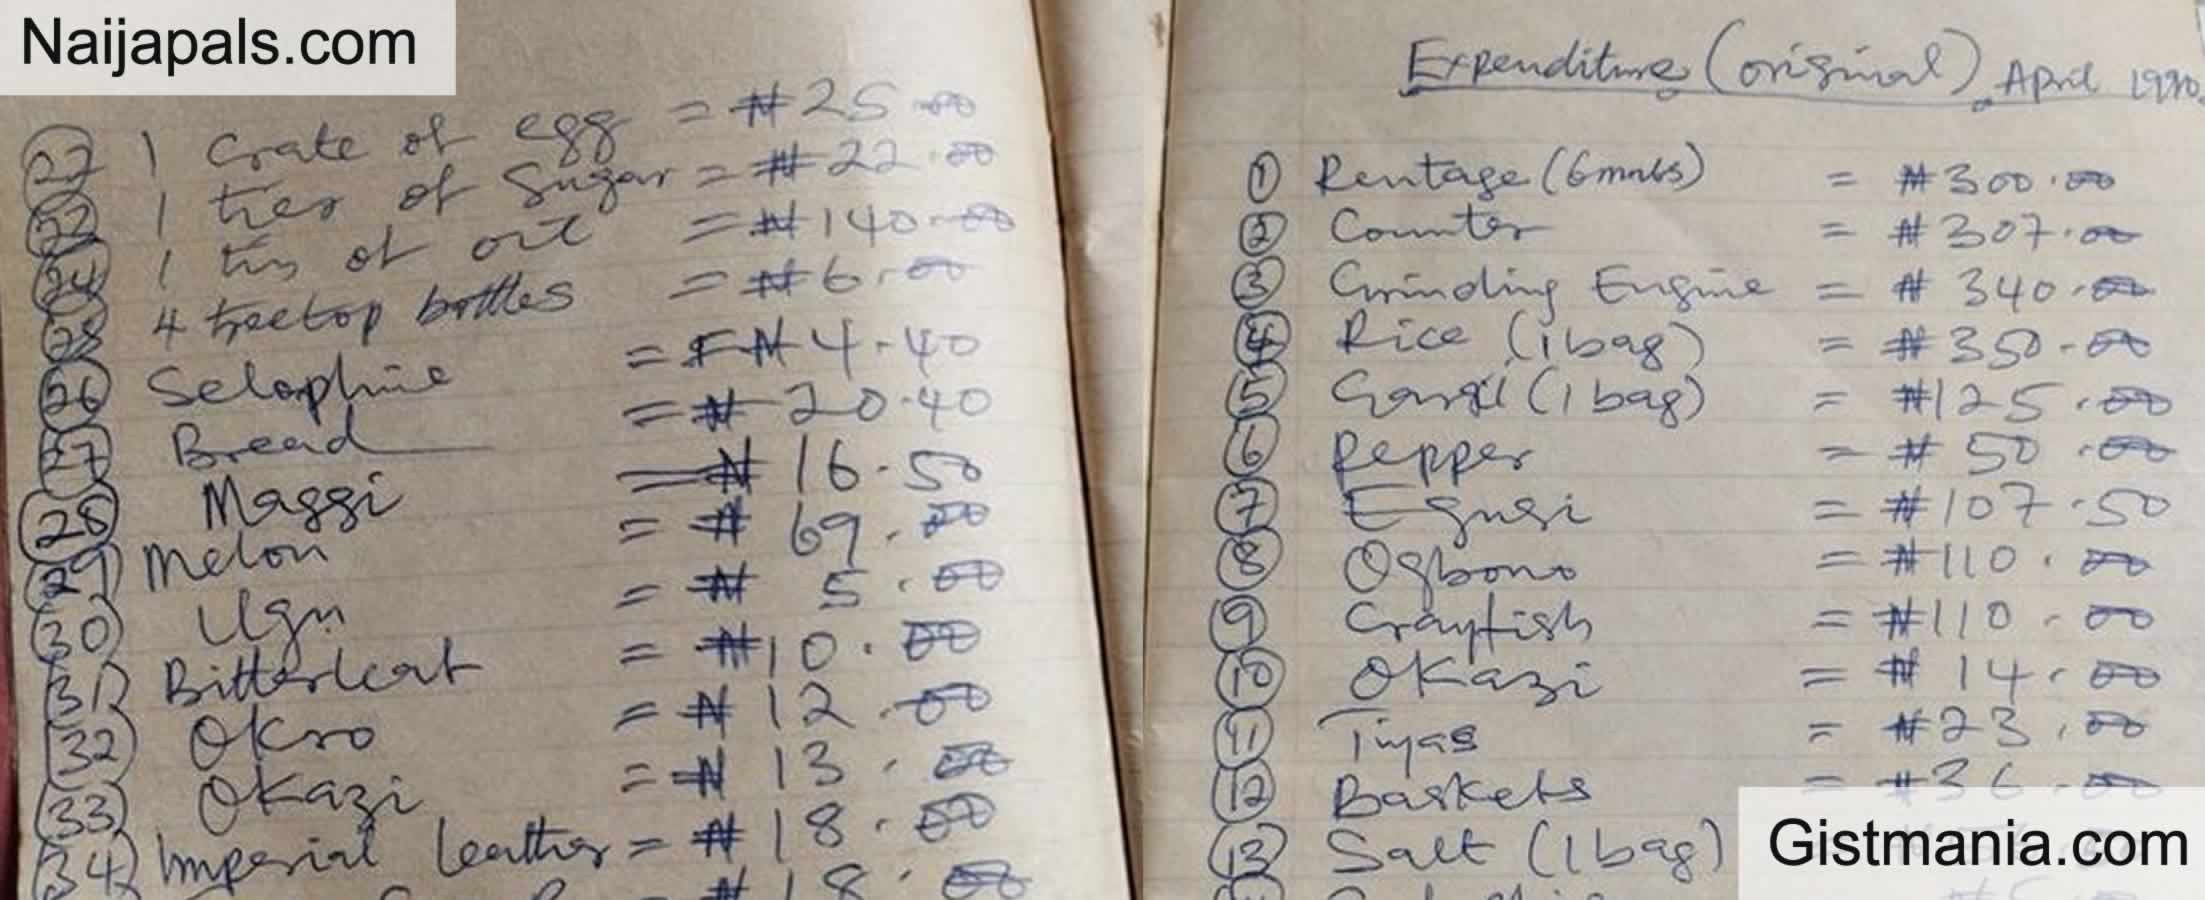 Naijapals.com
22 1 Crate of egg = ₦25.00
1 ties of Sugar = ₦22.00
24 1 tin of = ₦140.00
25 4 treetop bottles = ₦6.00
26 Selophine = ₦4.40
27 Bread = ₦20.40
28 Maggi = ₦16.50
29 Melon = ₦69.00
30 Ugu = ₦5.00
31 Bitterleaf = ₦10.00
32 Okro = ₦12.00
33 Okazi = ₦13.00
34 Imperial leather = ₦18.00
₦18.00
Expenditure (original) April 1990
1 Rentage (6mnts) = ₦300.00
2 Counter = ₦307.00
3 Grinding Engine = ₦340.00
4 Rice (1 bag) = ₦350.00
5 Garri (1 bag) = ₦125.00
6 Pepper = ₦50.00
7 Egusi = ₦107.50
8 Ogbono = ₦110.00
9 Crayfish = ₦110.00
10 Okazi = ₦14.00
11 = ₦23.00
12 Baskets = ₦36.00
13 Salt (1 bag)
Gistmania.com